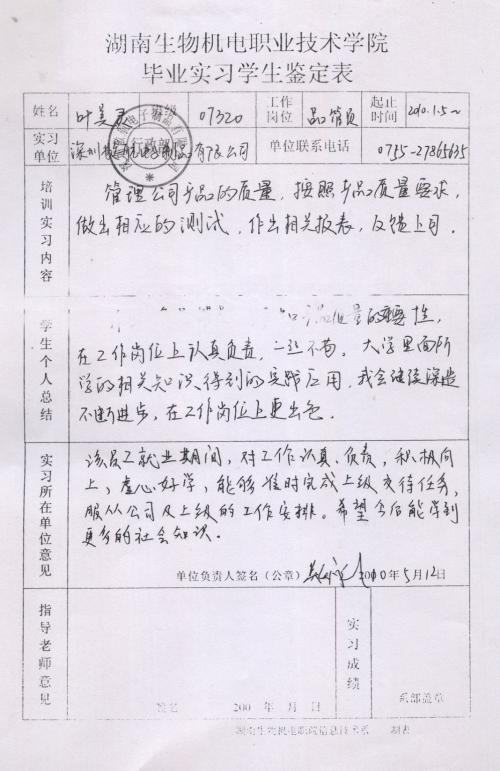 湖南生物机电职业技术学院
毕业实习学生鉴定表
姓名 叶美 班级 07320 工作岗位 品管员 起止时间 2010.1.5~
实习单位 深圳 有限公司 单位联系电话 0755-27865635
培训实习内容
管理公司产品的质量，按照产品质量要求，
做出相应的测试，作出相关报表，反馈上司．
学生个人总结
质量的重要性，
在工作岗位上认真负责，一丝不苟。大学里面所
学的相关知识得到的实践应用，我会继续深造
不断进步，在工作岗位上更出色．
实习所在单位意见
该员工就业期间，对工作认真、负责，积极向
上，虚心好学，能够准时完成上级交待任务，
服从公司及上级的工作安排。希望今后能学到
更多的社会知识．
单位负责人签名（公章） 2010年5月12日
指导老师意见
签名 200 年 月 日
实习成绩
系部盖章
湖南生物机电职院信息技术系 制表